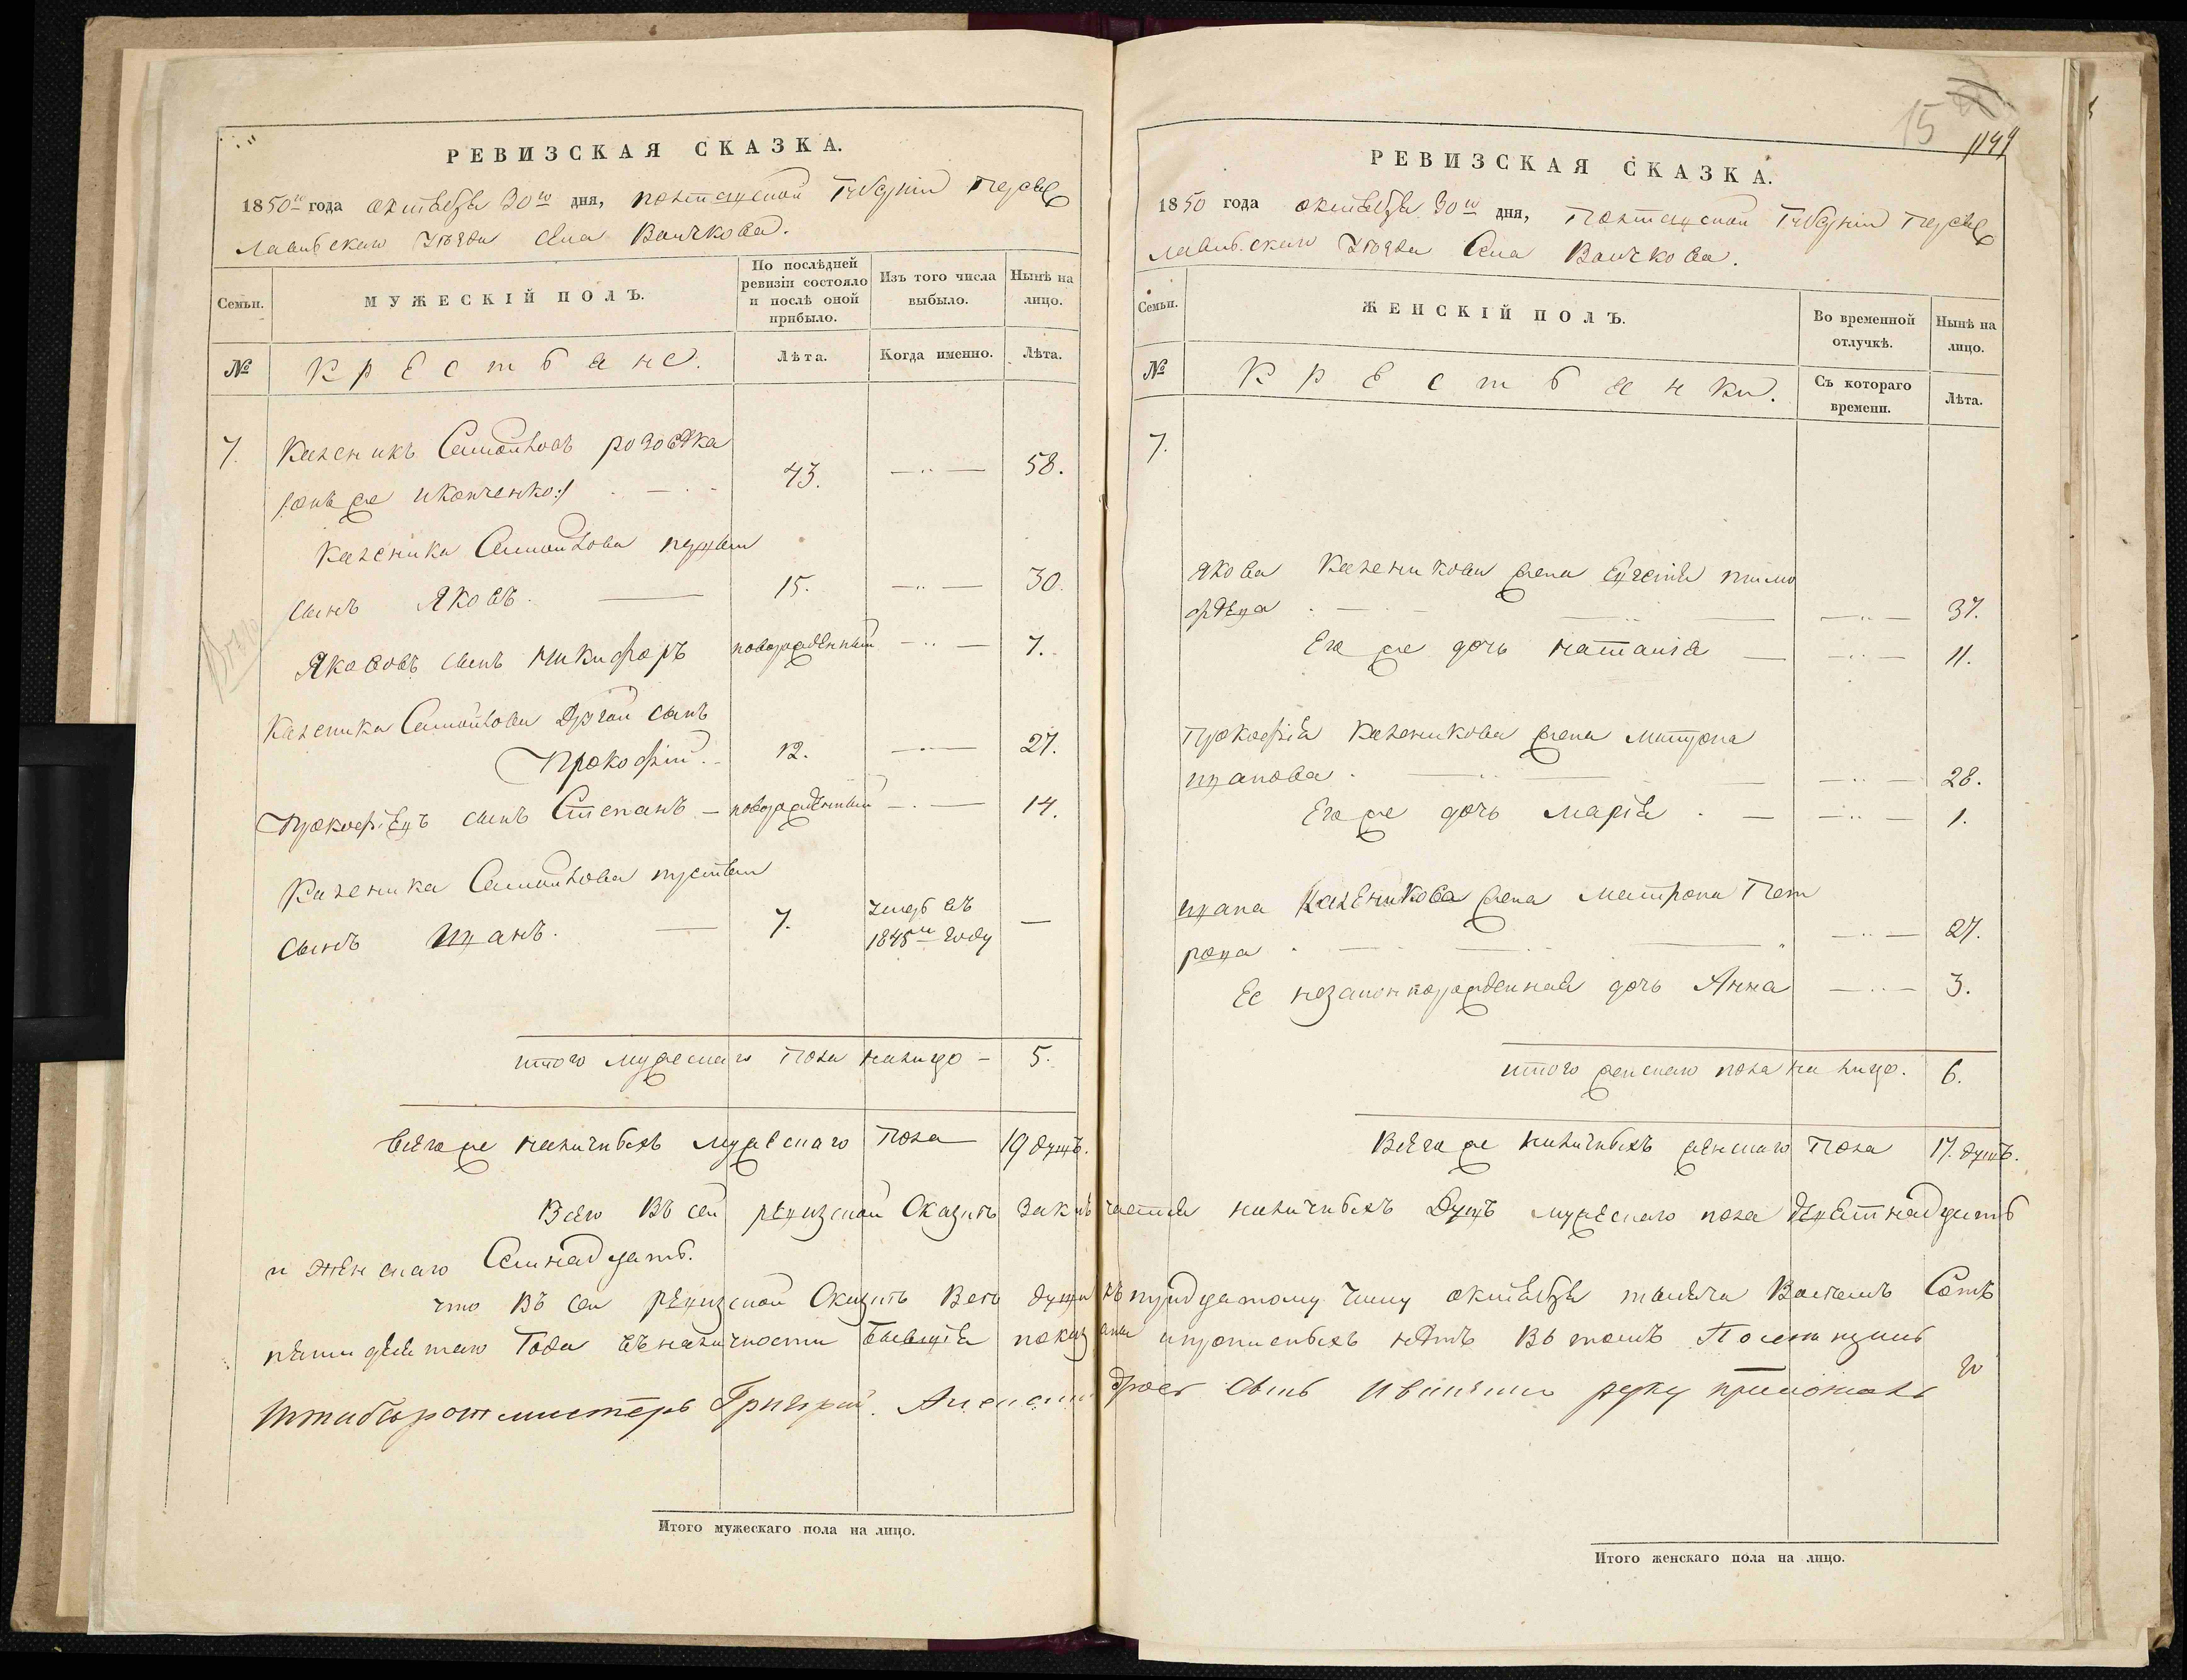 РЕВИЗСКАЯ СКАЗКА.
1850го года октября 30го дня, Полтавской Губерніи Переяс
лавльскаго Уѣзда Села Войткова.
Семьи.
МУЖЕСКІЙ ПОЛЪ.
По послѣдней ревизіи состояло и послѣ оной прибыло.
Изъ того числа выбыло.
Нынѣ на лицо.
№
Крестьяне.
Лѣта.
Когда именно.
Лѣта.
7. Каленикъ Самойловъ
43. 58.
/:онъ же
Каленика Самойлова первый
сынъ Яковъ. 15. 30.
Яковов сынъ Никифоръ новорожденный 7.
Каленика Самойлова Другой сынъ
Прокофій. 12. 27.
Прокофіевъ сынъ Степанъ новорожденный 14.
Каленика Самойлова третій
сынъ Иванъ. 7. умеръ въ
1848м году —
итого мужескаго пола налицо - 5.
Всего же наличныхъ мужескаго Пола 19 душъ.
РЕВИЗСКАЯ СКАЗКА.
15
1850 года октября 30го дня, Полтавской Губерніи Переяс
лавльскаго Уѣзда Села Войткова.
Семьи.
ЖЕНСКІЙ ПОЛЪ.
Во временной отлучкѣ.
Нынѣ на лицо.
№
Крестьянки.
Съ котораго времени.
Лѣта.
7.
Якова Каленикова жена Евгенія Тимо
фѣева 37.
Его же дочь Наталія 11.
Прокофія Каленикова жена Матрона
Иванова. 28.
Его же дочь Марія. 1.
Ивана Каленикова жена Матрона Пет
рова 27.
Ее незаконнорожденная дочь Анна 3.
итого женскаго пола на лицо. 6.
Всего же наличныхъ женскаго Пола 17. душъ.
Всего Въ сей ревизской Сказкѣ Заключается наличныхъ Душъ мужескаго пола девятнадцать
и женскаго Семнадцать.
что Въ сей ревизской Сказкѣ Всѣ души къ тридцатому числу октября тысяча Восемъ Сотъ
пятидесятаго Года въ наличности бывшія показаны и прописныхъ нѣтъ Въ томъ Помѣщикъ
Штабсъ ротмистеръ Григорій Александровъ сынъ руку приложилъ
Итого мужескаго пола на лицо.
Итого женскаго пола на лицо.